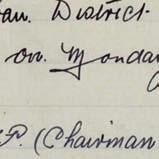 an. District
on. Monday
P. (Chairman